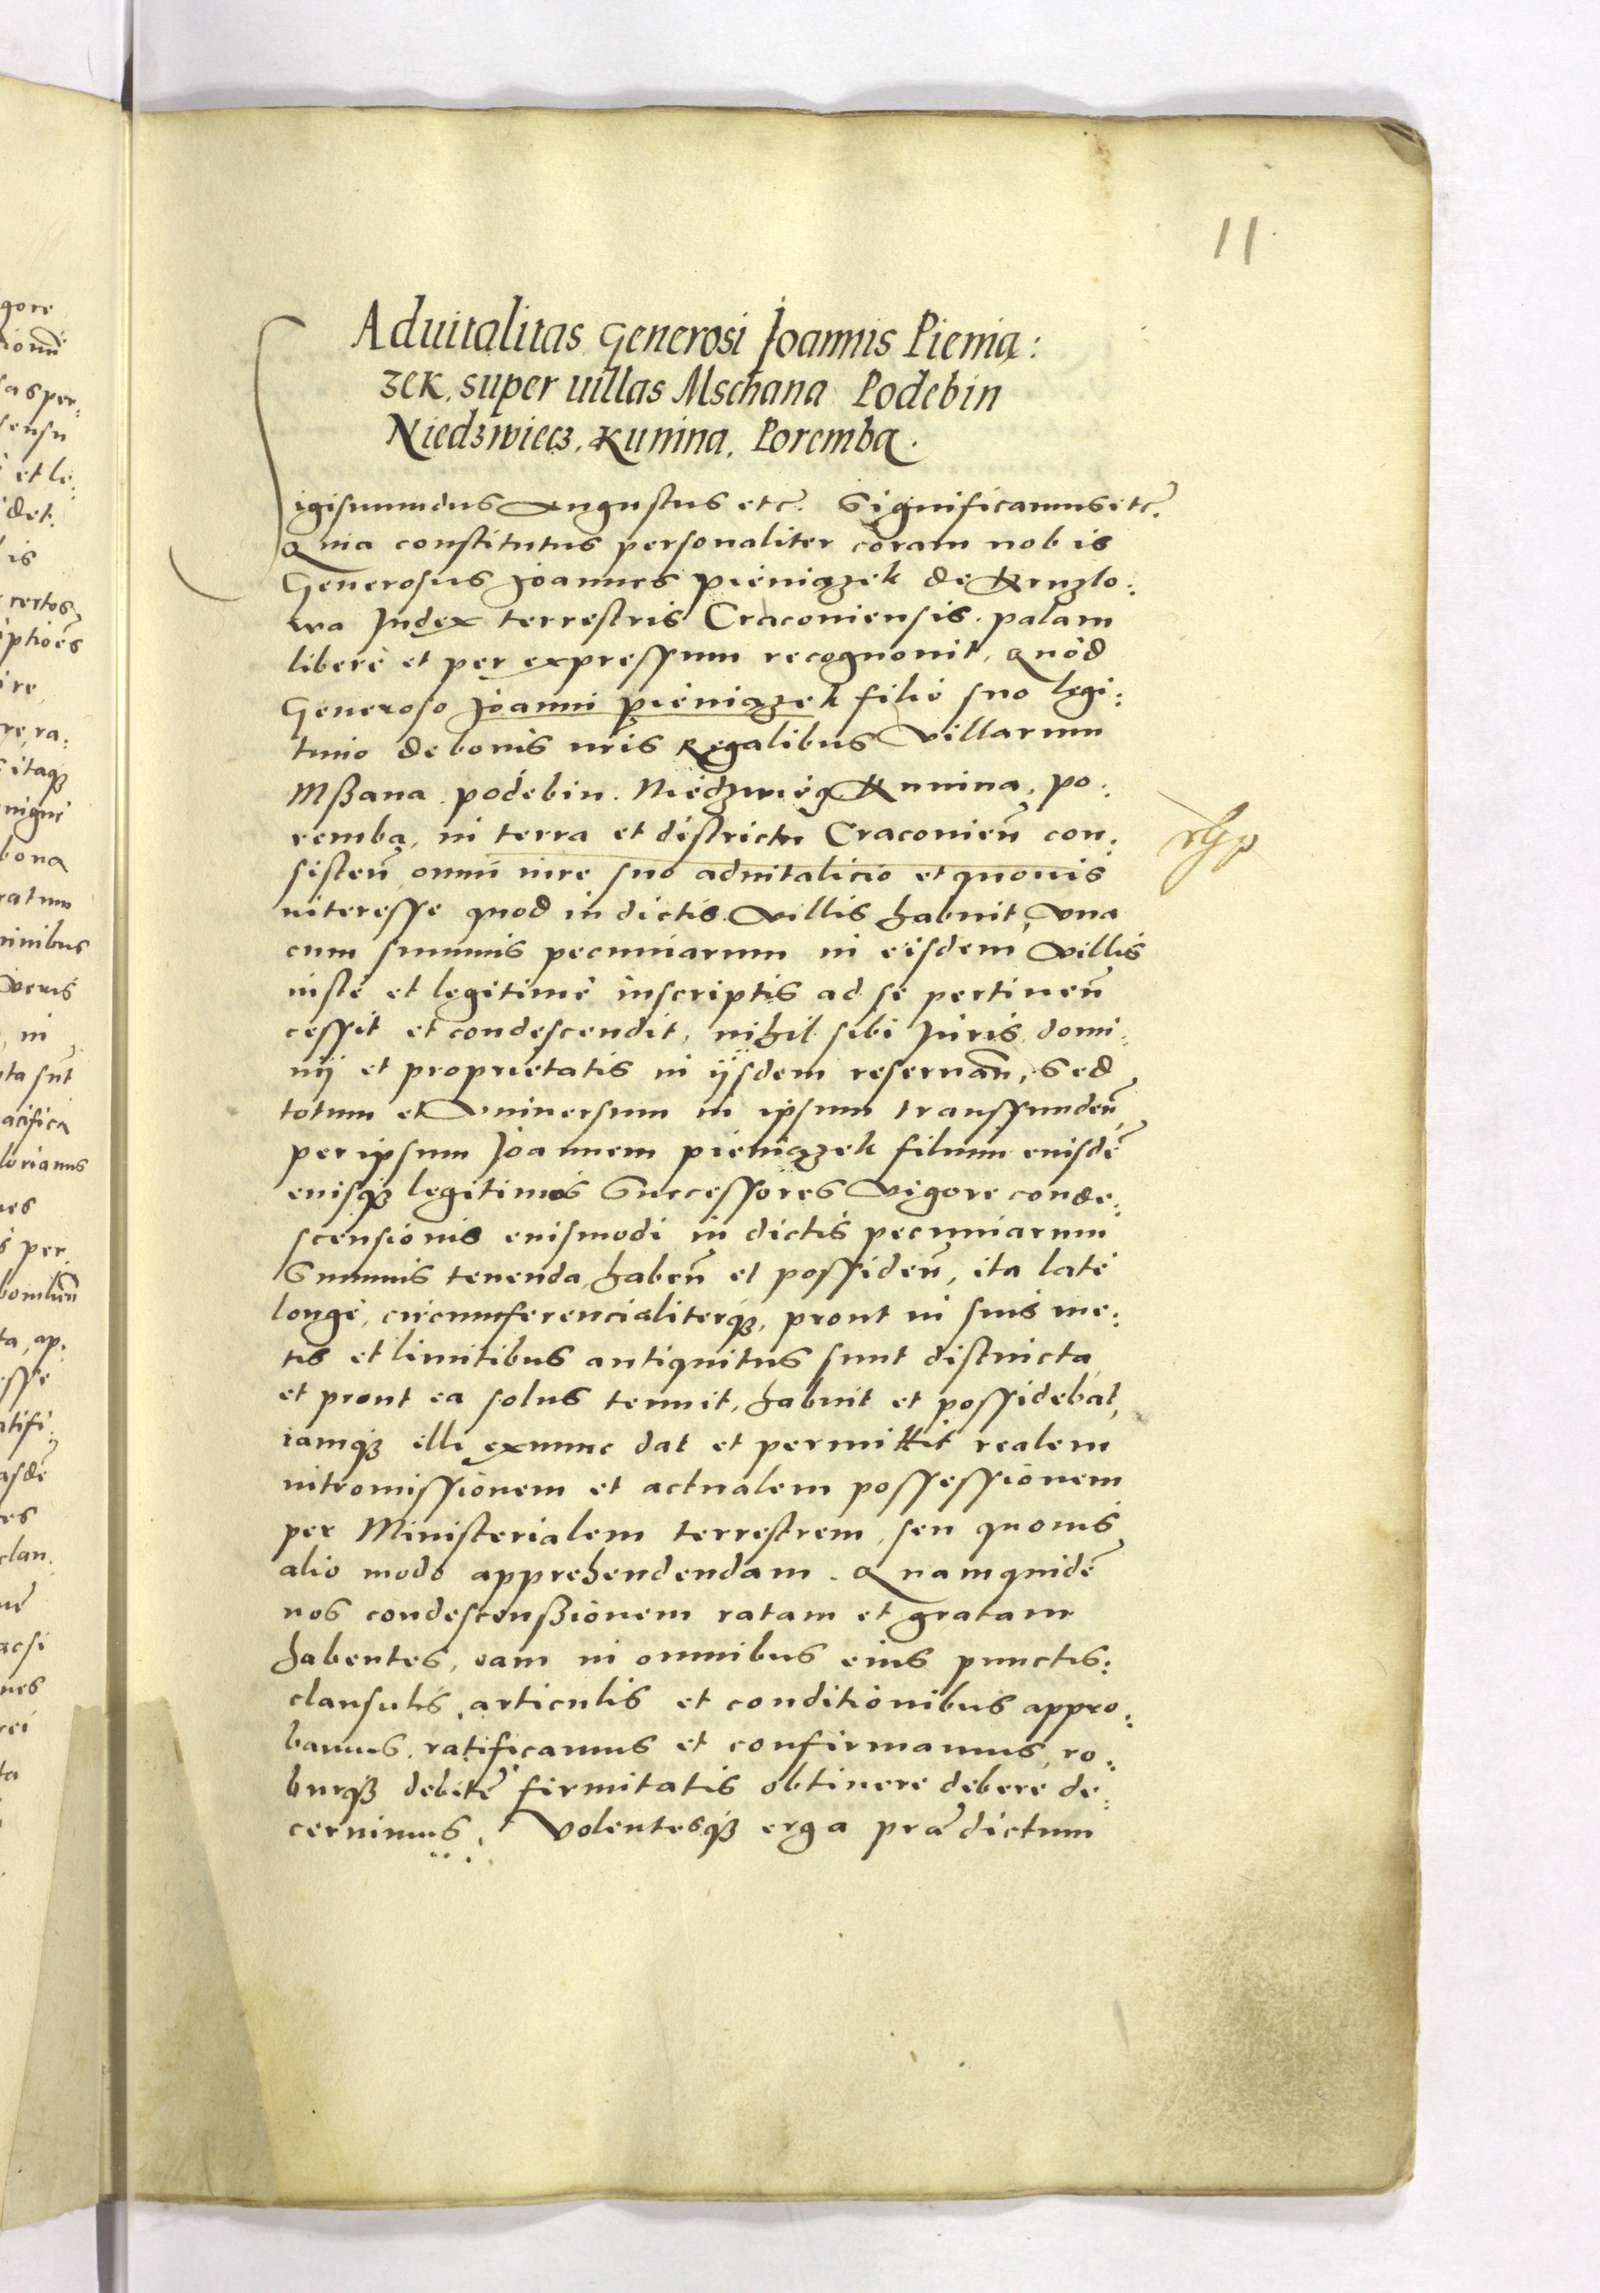 11
Aduitalitas Generosi Joannis Pienią:
zek, super uillas Mschana Podebin
Niedzwiecz, Kunina, Poremba.
Sigismundus Augustus etc. Significamus etc.
Quia constitutus personaliter coram nobis
Generosus Joannes Pieniązek de Kruzlo:
wa Judex terrestris Craconiensis. palam
liberè et per expressum recognouit, Quòd
Generoso Joanni Pieniązek filio suo legi:
timo de bonis nris Regalibus Villarum
Mßana. Podebin. Niedzwieg Kunina, Po:
remba, in terra et districtu Cracouien̄ con:
sisten̄ omni iure suo aduitalicio et quouis
interesse quod in dictis villis habuit, Vna
cum summis pecuniarum in eisdem Villis
iustè et legitimè inscriptis ad se pertinen̄
cessit et condescendit, nihil sibi Juris domi:
nij et proprietatis in ijsdem reseruan̄, Sed
totum et Vniuersum in ipsum transfunden̄
per ipsum Joannem Pieniązek filium eiusdē
eiusq₃ legitimos Successores Vigore conde:
scensionis eiusmodi in dictis pecuniarum
Summis tenenda, haben̄ et possiden̄, ita latè
longè, circumferencialiterq₃, prout in suis me:
tis et limitibus antiquitus sunt distincta
et prout ea solus tenuit, habuit et possidebat,
iamq₃ illi exnunc dat et permittit realem
intromissionem et actualem possessionem
per Ministerialem terrestrem, seu quouis
alio modo apprehendendam. Quamquidē
nos condescenßionem ratam et gratam
habentes, eam in omnibus eius punctis:
clausulis, articulis et conditionibus appro:
bamus, ratificamus et confirmamus, ro:
burq₃ debitę firmitatis obtinere debere de:
cernimus. Volentesq₃ erga prædictum